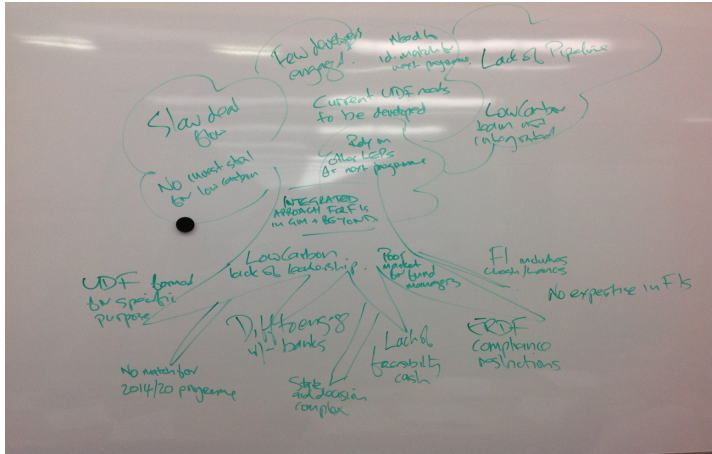 Few developers
engaged!
Need to
id. match for
next programme
Lack of Pipeline
Slow deal
flow
Current UDF needs
to be developed
Low Carbon
team not
integrated
No invest strat
for low carbon
Rely on
other LEPs
for next programme
INTEGRATED
APPROACH FOR FIs
IN GM + BEYOND
Low Carbon
lack of leadership.
Poor
market
for fund
managers
FI includes
UDF formed
for specific
purpose
No expertise in FIs
Diff to engage
w/ banks
Lack of
feasibility
cash
ERDF
compliance
restrictions
No match for
2014/20 programme
State
aid decision
complex